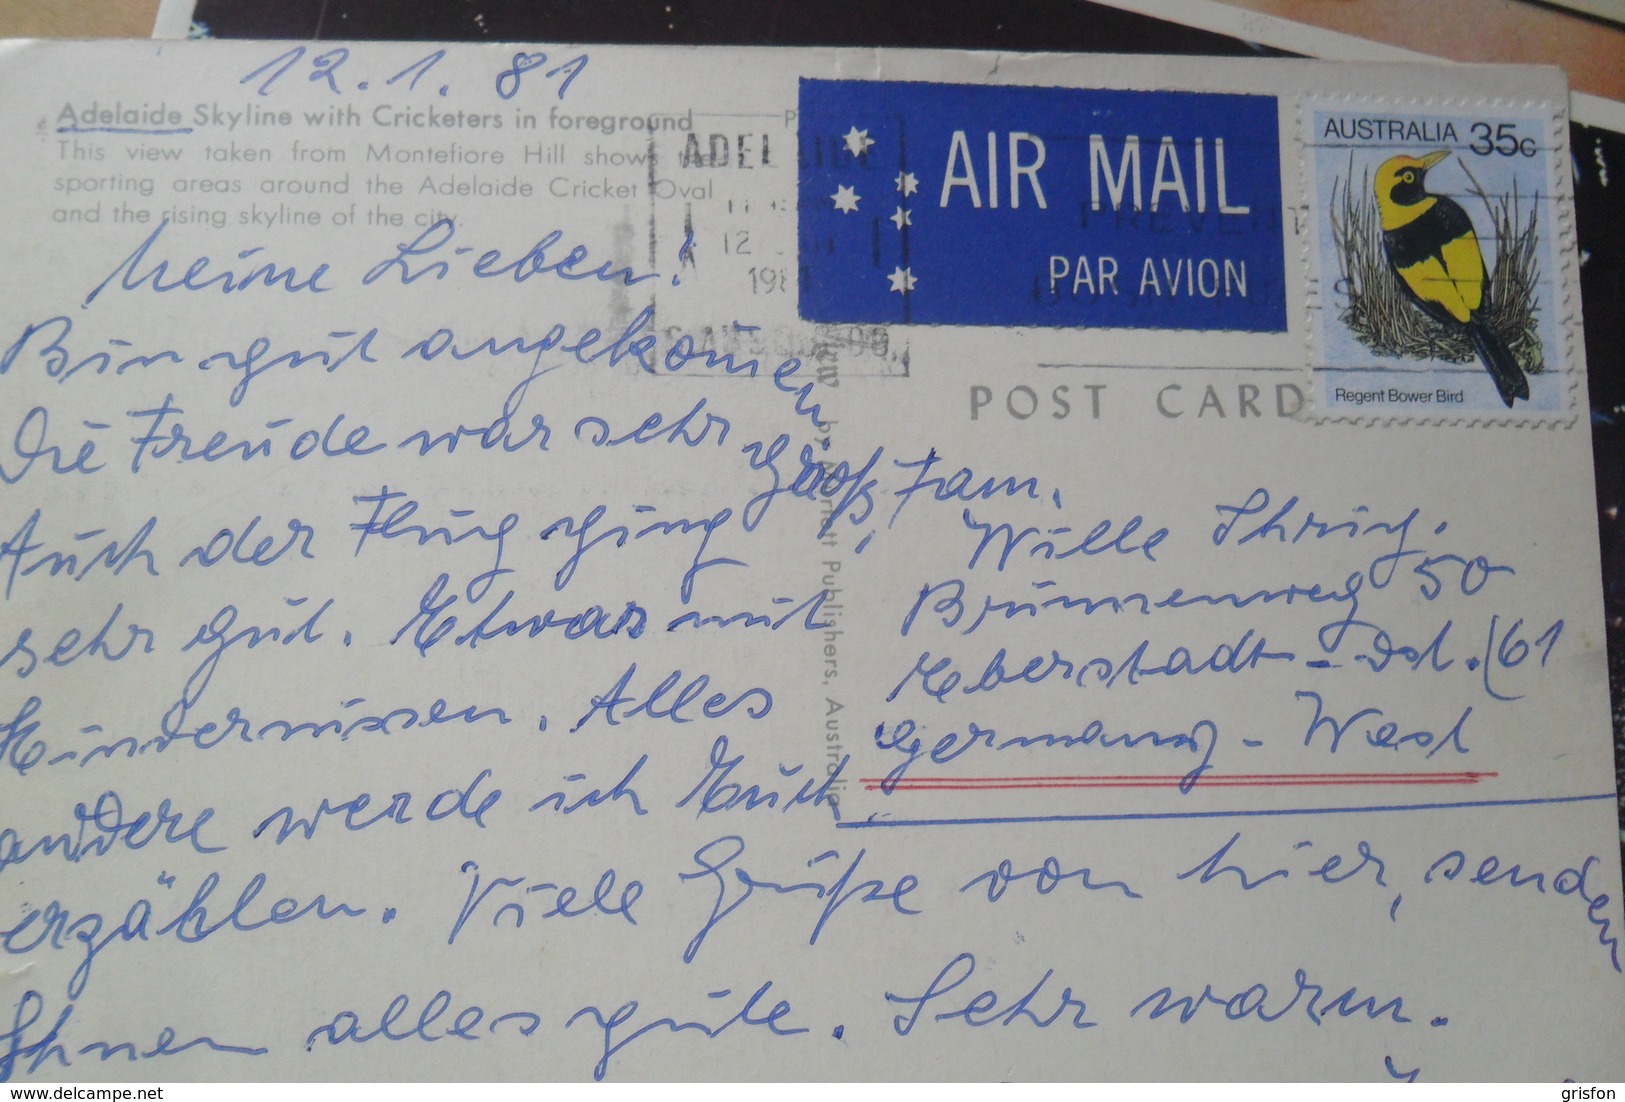 12.1.81
Adelaide Skyline with Cricketers in foreground
This view taken from Montefiore Hill shows the
sporting areas around the Adelaide Cricket Oval
and the rising skyline of the city.
ADELAIDE
12 JAN
1981
AIR MAIL
PAR AVION
PREVENT
AUSTRALIA 35c
Regent Bower Bird
POST CARD
by Publishers, Australia
Meine Lieben!
Bin gut angekomen.
Die Freude war sehr groß,
Auch der Flug ging
sehr gut. Etwas mit
Hindernissen. Alles
andere werde ich Euch
erzählen. Viele Grüße von hier, senden
Ihnen alles gute. Sehr warm.
Fam.
Wille Ihrig.
Brunnenweg 50
Eberstadt-Dst. (61
Germany - West
delcampe.net
grisfon